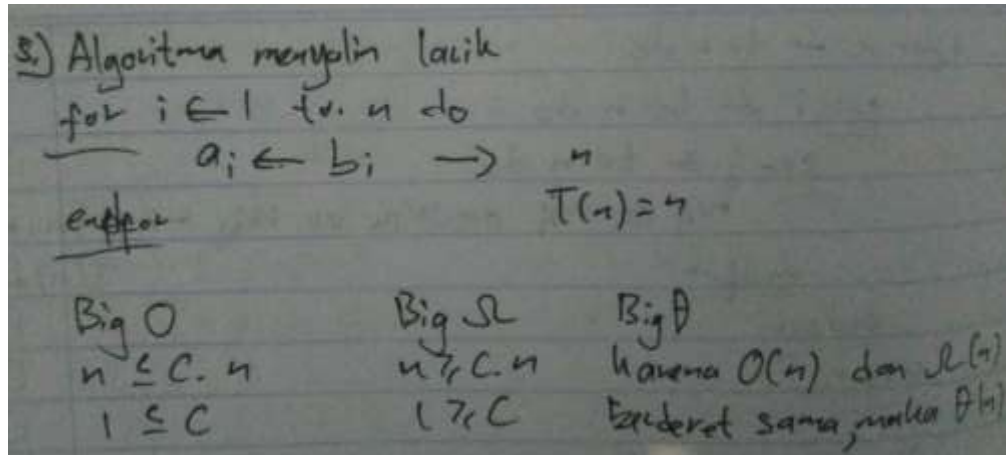 3.) Algoritma menyalin larik
for i ← 1 to n do
ai ← bi → n
endfor T(n) = n
Big O Big Ω Big θ
n ≤ C. n n ≥ C. n karena O(n) dan Ω(n)
1 ≤ C 1 ≥ C sama, maka θ(n)